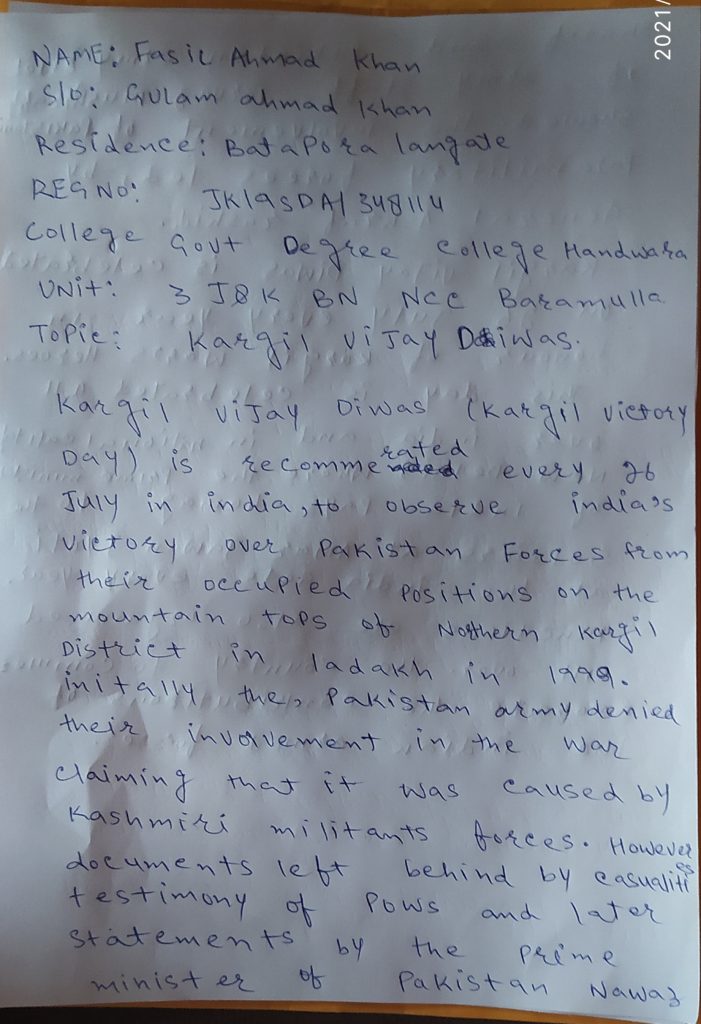 2021/
NAME: Fasil Ahmad Khan
S/o: Gulam ahmad Khan
Residence: Batapora langate
REG No: JK19SDA/348114
College Govt Degree College Handwara
UNit: 3 J&K BN NCC Baramulla
Topic: Kargil viJay Diwas.
Kargil viJay Diwas (Kargil victory
Day) is recommerated every 26
July in india, to observe india's
victory over Pakistan Forces from
their occupied positions on the
mountain tops of Northern Kargil
District in ladakh in 1999.
initally the, Pakistan army denied
their involvement in the war
claiming that it was caused by
Kashmiri militants forces. However
documents left behind by casualities
testimony of POWs and later
statements by the prime
minister of Pakistan Nawaz